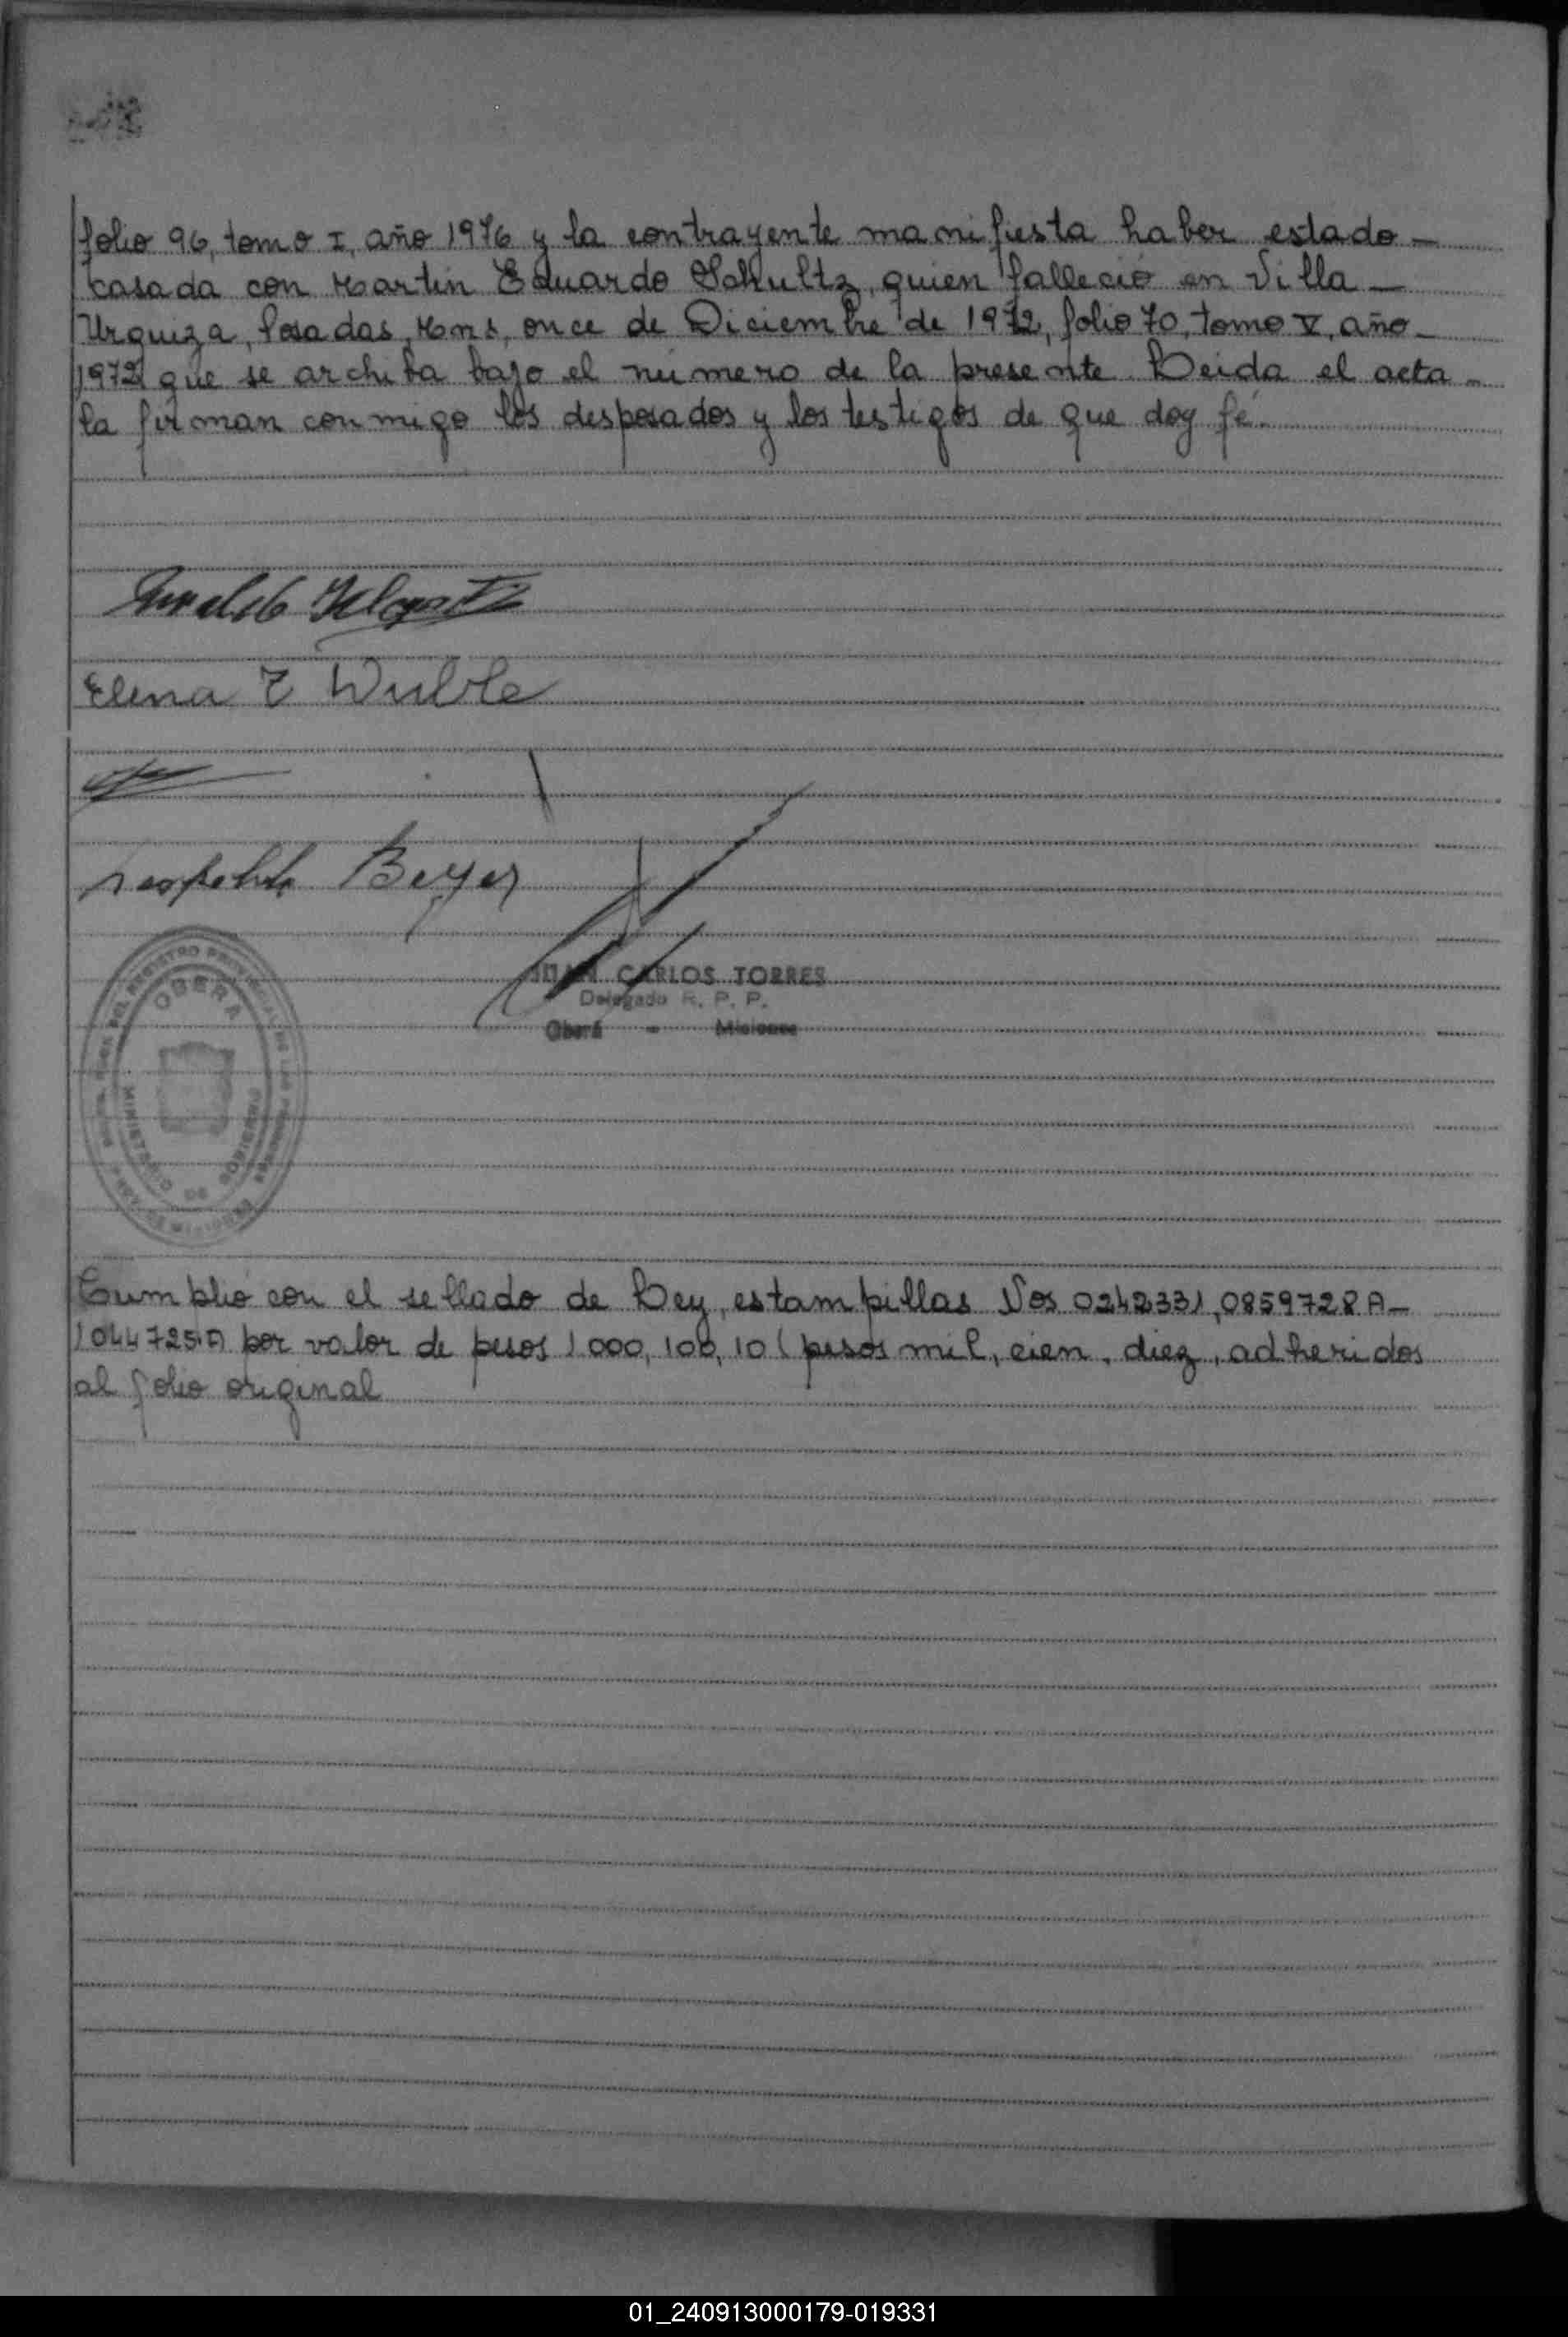 folio 96, tomo I, año 1976 y la contrayente manifiesta haber estado –
casada con Martin Eduardo Schultz, quien falleció en Villa –
Urquiza, Posadas, Mns, once de Diciembre de 1972, folio 70, tomo V, año –
1972 que se archiba bajo el número de la presente. Leida el acta –
la firman conmigo los desposados y los testigos de que doy fé.
Elena E Wuble
Beyer
JUAN CARLOS TORRES
Delegado R. P. P.
Oberá - Misiones
OBERA
MINISTERIO DE
Cumplió con el sellado de Ley, estampillas Nos 0242331, 0859728 A –
1044725 A por valor de pesos 1.000, 100, 10 ( pesos mil, cien, diez, adheridos
al folio original
01_240913000179-019331